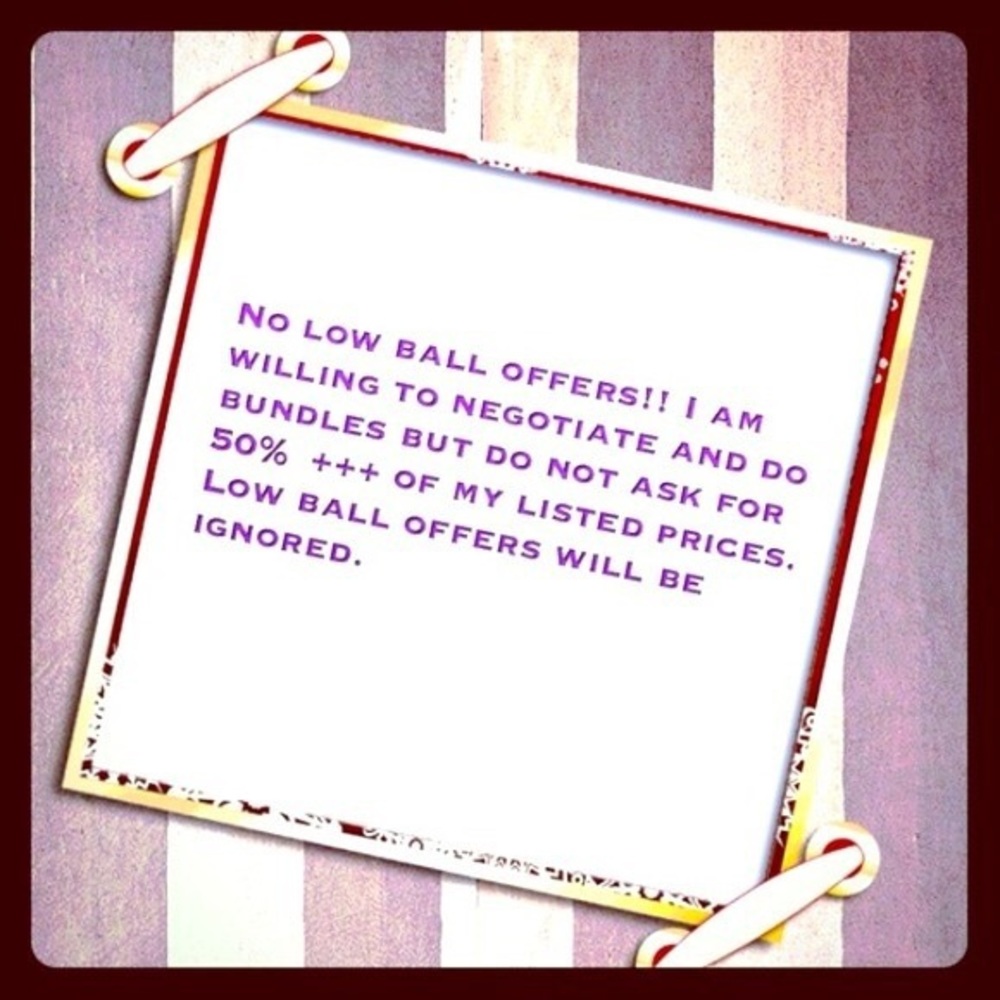 No low ball offers!! I am
willing to negotiate and do
bundles but do not ask for
50% +++ of my listed prices.
Low ball offers will be
ignored.